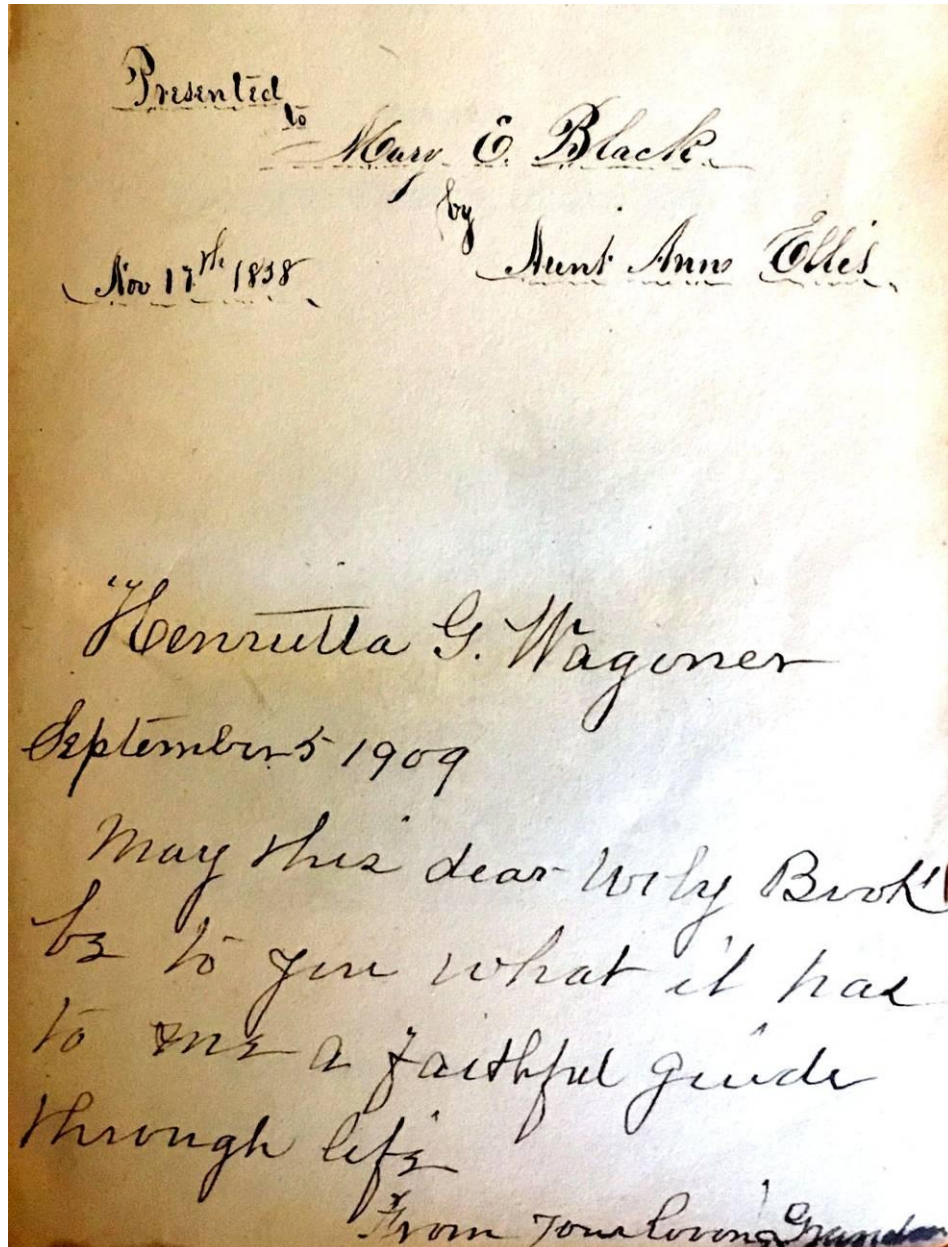 Presented
to
Mary E. Black
by
Aunt Anne Ellis
Nov 17th 1838
Henrietta G. Wagoner
September 5 1909
May this dear Holy Book
be to you what it has
to me a faithful guide
through life
From your loving Grandma